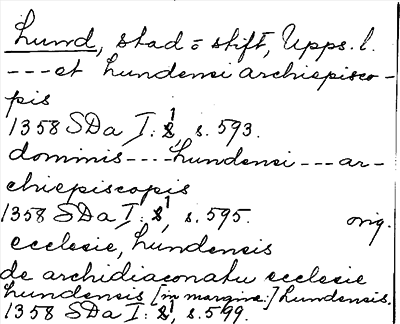 Lund, stad = stift, Upps. l.
---et Lundensi archiepisco-
pis
1358 SDa I: 1, s. 593.
dominis----Lundensi---ar-
chiepiscopis
1358 SDa I: 1, s. 595. orig.
ecclesie, Lundensis
de archidiaconatu ecclesie
Lundensis [in margine:] Lundensis.
1358 SDa I: 1, s. 599.